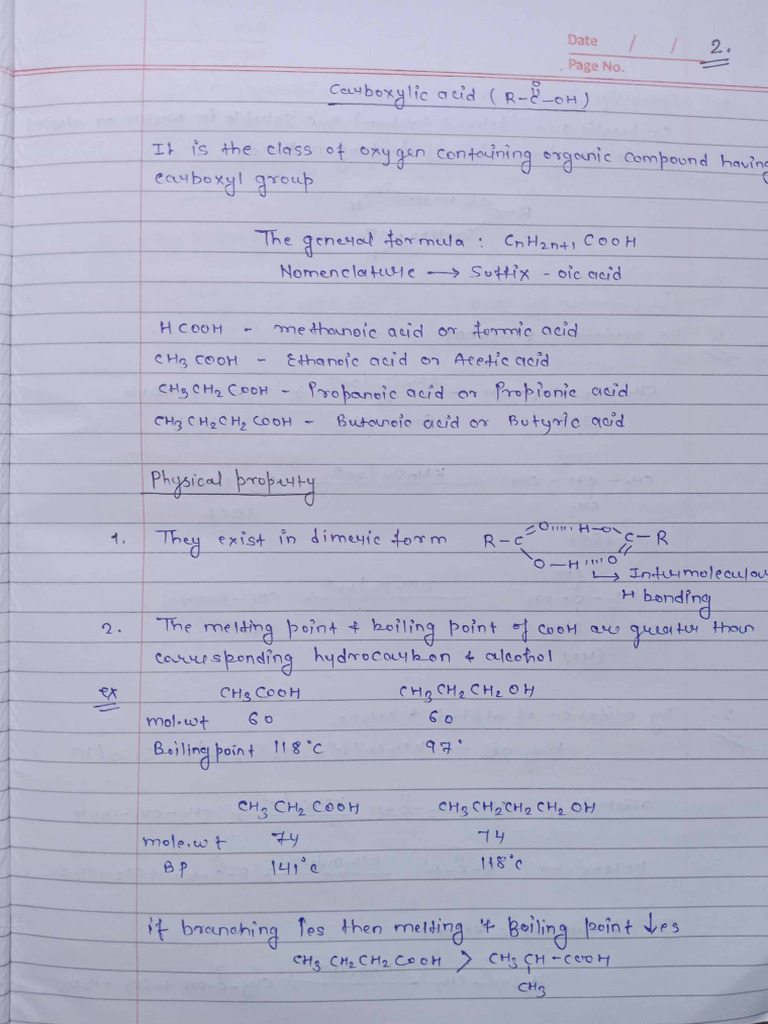 Date / / 2.
Page No.
Carboxylic acid ( R-C-OH )
O
It is the class of oxygen containing organic compound having
carboxyl group
The general formula : CnH2n+1 COOH
Nomenclature → Suffix - oic acid
HCOOH - methanoic acid or formic acid
CH3COOH - Ethanoic acid or Acetic acid
CH3CH2COOH - Propanoic acid or Propionic acid
CH3CH2CH2COOH - Butanoic acid or Butyric acid
Physical property
1. They exist in dimeric form R-C =O ıııı H-O C-R
O-H ıııı O
↳ Intermolecular
H bonding
2. The melting point & boiling point of COOH are greater than
corresponding hydrocarbon & alcohol
ex CH3COOH CH3CH2CH2OH
mol.wt 60 60
Boiling point 118°C 97°
CH3CH2COOH CH3CH2CH2CH2OH
mole.wt 74 74
BP 141°C 118°C
if branching ↑es then melting & Boiling point ↓es
CH3CH2CH2COOH > CH3CH-COOH
CH3